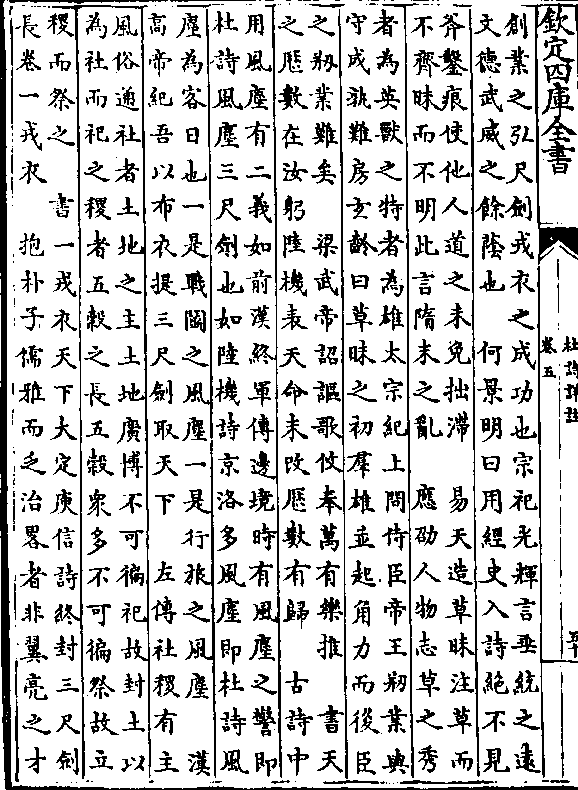 欽定四庫全書
杜詩詳註
卷五
創業之弘尺劍戎衣之成功也宗祀光輝言垂統之遠
文德武威之餘蔭也　何景明曰用經史入詩絶不見
斧鑿痕使他人道之未免拙滯　易天造草昧注草而
不齊昧而不明此言隋末之亂　應劭人物志草之秀
者為英獸之特者為雄太宗紀上問侍臣帝王剏業與
守成孰難房玄齡曰草昧之初羣雄並起角力而後臣
之剏業難矣　梁武帝詔謳歌攸奉萬有樂推　書天
之歷數在汝躬陸機表天命未改歷數有歸　古詩中
用風塵有二義如前漢終軍傳邊境時有風塵之警即
杜詩風塵三尺劍也如陸機詩京洛多風塵即杜詩風
塵為客日也一是戰鬬之風塵一是行旅之風塵　漢
高帝紀吾以布衣提三尺劍取天下　左傳社稷有主
風俗通社者土地之主土地廣博不可徧祀故封土以
為社而祀之稷者五穀之長五穀衆多不可徧祭故立
稷而祭之　書一戎衣天下大定庾信詩終封三尺劍
長卷一戎衣　抱朴子儒雅而乏治畧者非翼亮之才